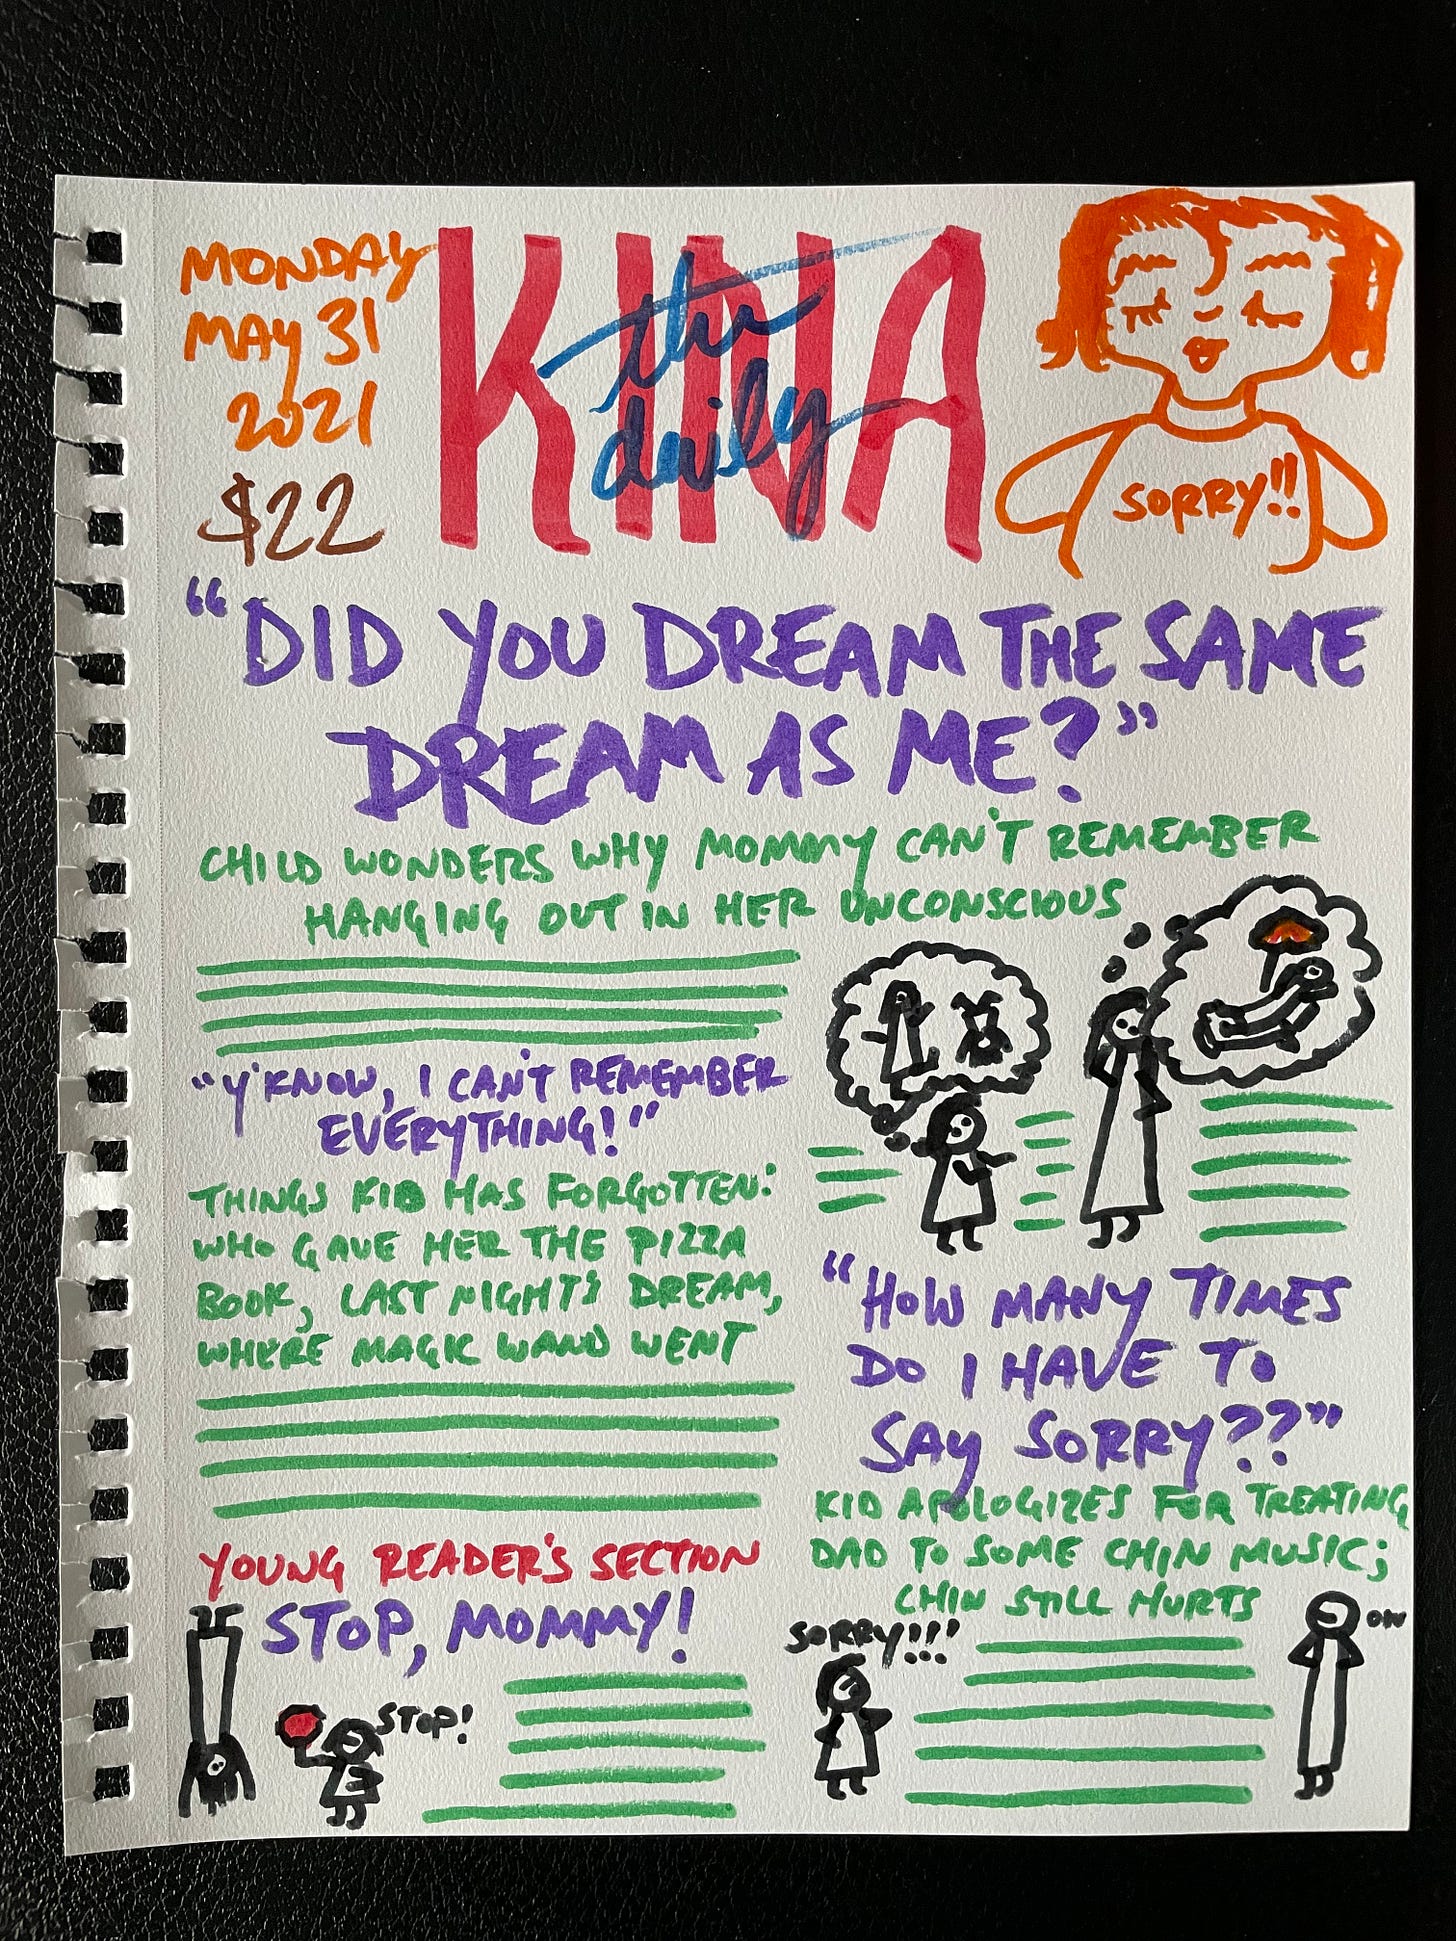 MONDAY
MAY 31
2021
$22
KINA
the
daily
SORRY!!
"DID YOU DREAM THE SAME
DREAM AS ME?"
CHILD WONDERS WHY MOMMY CAN'T REMEMBER
HANGING OUT IN HER UNCONSCIOUS
"Y'KNOW, I CAN'T REMEMBER
EVERYTHING!"
THINGS KID HAS FORGOTTEN:
WHO GAVE HER THE PIZZA
BOOK, LAST NIGHT'S DREAM,
WHERE MAGIC WAND WENT
"HOW MANY TIMES
DO I HAVE TO
SAY SORRY??"
KID APOLOGIZES FOR TREATING
DAD TO SOME CHIN MUSIC;
CHIN STILL HURTS
SORRY!!!
OW
YOUNG READER'S SECTION
STOP, MOMMY!
STOP!